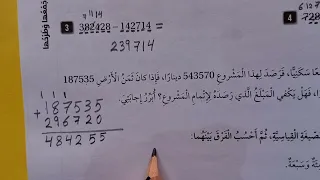 3 382428 − 142714 =
239714
4 728
عًا سَكَنِيًّا، فَرَصَدَ لِهذا الْمَشْروعِ 543570 دينارًا، فَإِذا كانَ ثَمَنُ الْأَرْضِ 187535
هَلْ يَكْفي الْمَبْلَغُ الَّذي رَصَدَهُ لِإِتْمامِ الْمَشْروعِ؟ أُبَرِّرُ إِجابَتي.
1 1 1
187535
+ 296720
484255
الْقِياسِيَّةِ، ثُمَّ أَحْسُبُ الْفَرْقَ بَيْنَهُما: